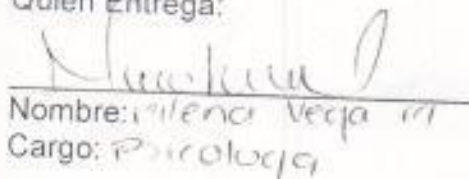 Quien Entrega:
Nombre: Milena Vega M
Cargo: Psicologa